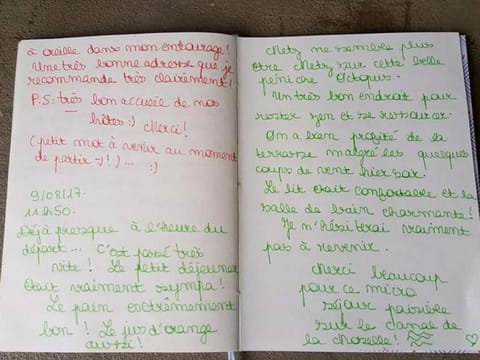 à oreille dans mon entourage!
Une très bonne adresse que je
recommande très clairement!
P.S: très bon accueil de nos
hôtes :) Merci!
(petit mot à venir au moment
de partir ! ) ... :)
9/08/17.
11h50.
Déjà presque à l'heure du
départ... C'est passé très
vite! Le petit déjeuner
était vraiment sympa!
Le pain extrêmement
bon! Le jus d'orange
aussi!
Metz ne semble plus
être Metz sur cette belle
péniche Octopus.
Un très bon endroit pour
rester zen et se ressourcer.
On a bien profité de la
terrasse malgré les quelques
coups de vent hier soir.
Le lit était confortable et la
salle de bain charmante!
Je n'hésiterai vraiment
pas à revenir.
Merci beaucoup
pour ce micro
séjour paisible
sur le canal de
la Moselle!